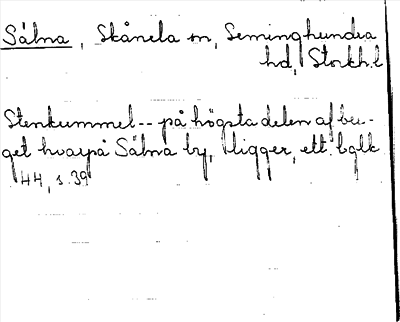 Sälna, Skånela sn, Seminghundra
hd, Stockh. l
Stenkummel -- på högsta delen af ber-
get hvarpå Sälna by, ligger, ett. balk
44, s. 39